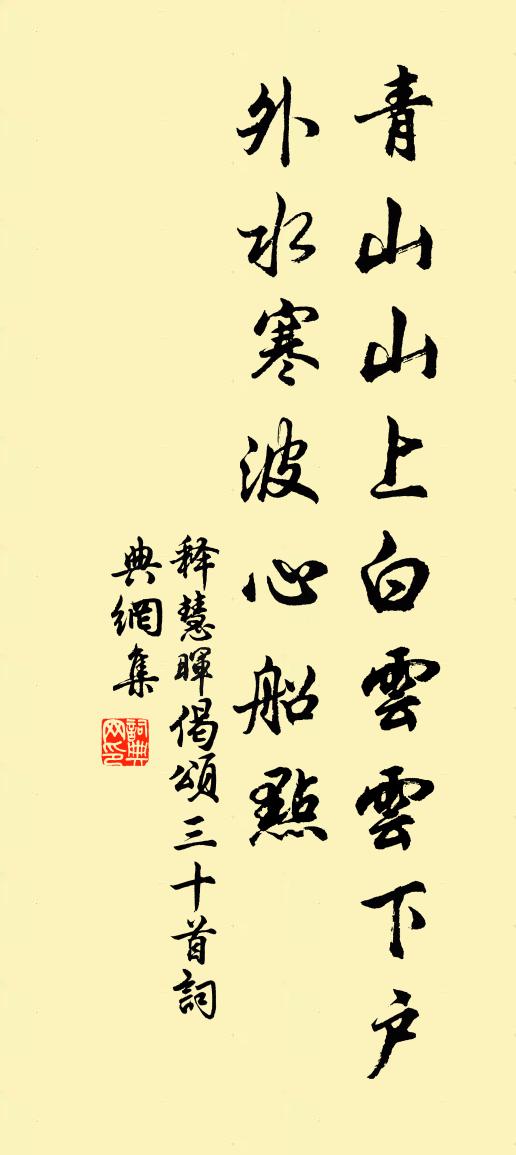 青山山上白雲雲下户
外水寒波心船點
釋慧暉偈頌三十首詞
典網集
詞典
网印